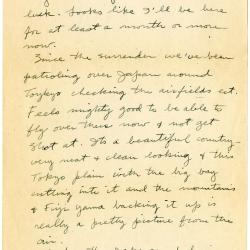 luck. Looks like I'll be here
for at least a month or more
now.
Since the surrender we've been
patroling over Japan around
Toykyo checking the airfields ect.
Feels mighty good to be able to
fly over them now & not get
shot at. Its a beautiful country-
very neat & clean looking & this
Tokyo plain with the big bay
cutting into it and the mountains
& Fuji yama backing it up is
really a pretty picture from the
air.